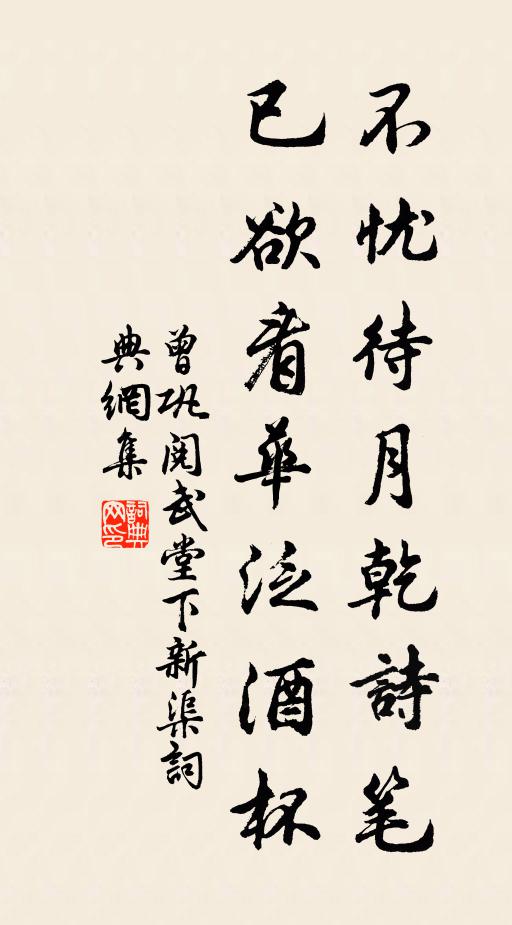 不忧待月乾詩笔
已欲看華泛酒杯
曾巩阅武堂下新渠詞
典網集
詞典
网印